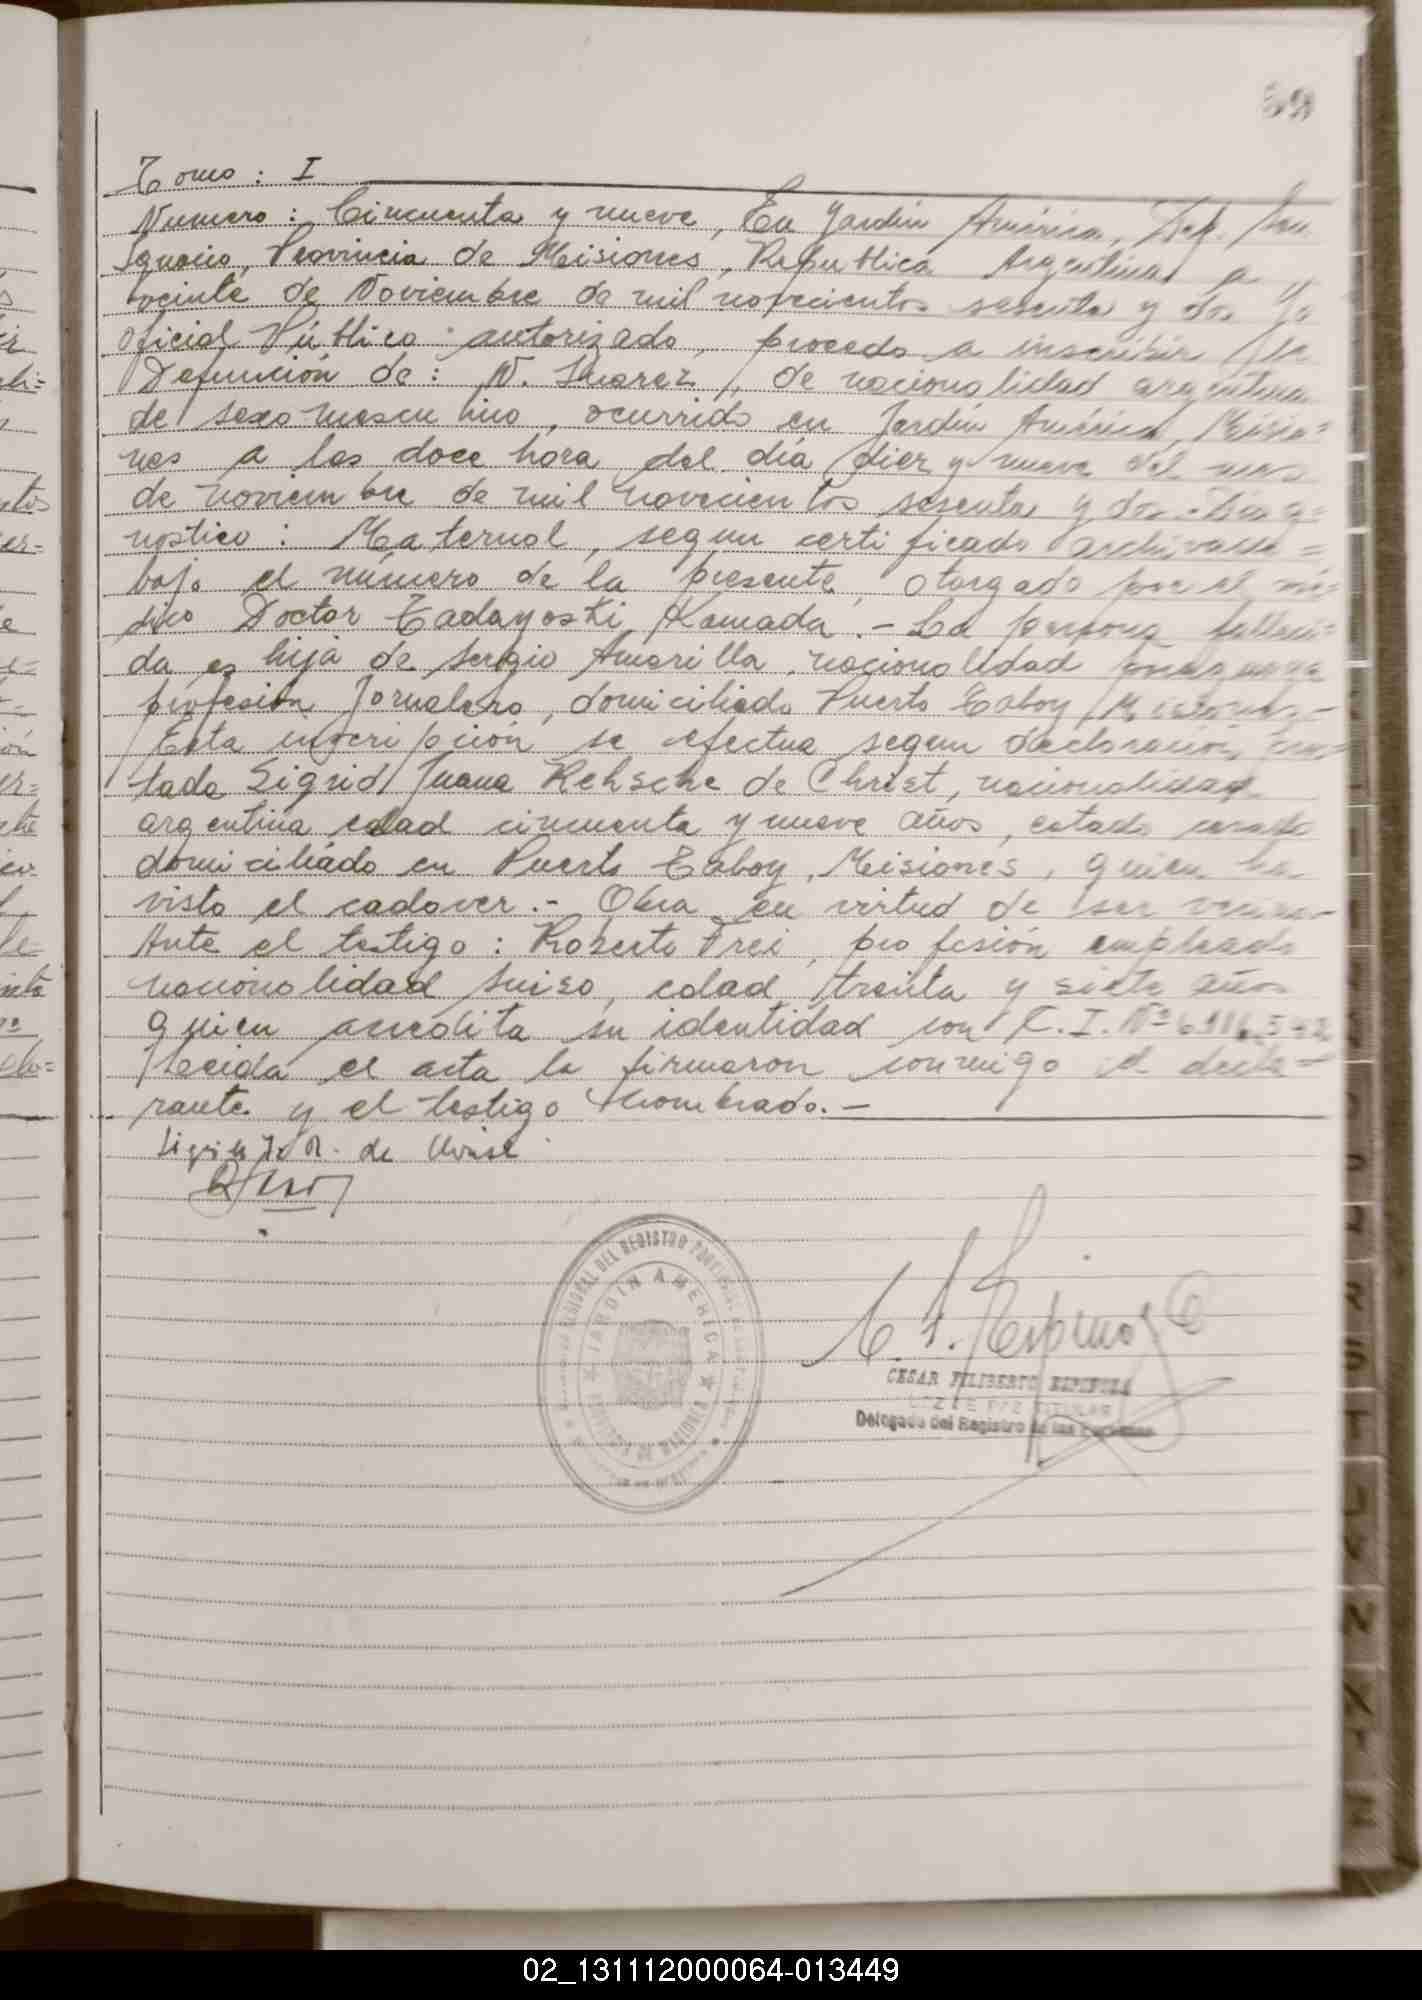 59
Tomo: I
Numero: Cincuenta y nueve, En Jardín América, Dep. San
Ignacio, Provincia de Misiones, Republica Argentina a
veinte de Noviembre de mil novecientos sesenta y dos Yo
Oficial Público autorizado, procedo a inscribir la
Defunción de: N. Suarez, de nacionalidad argentina
de sexo masculino, ocurrido en Jardín América, Misio=
nes a las doce hora del día diez y nueve del mes
de noviembre de mil novecientos sesenta y dos. Diag=
nostico: Maternal, segun certificado archivado=
bajo el número de la presente, otorgado por el mé=
dico Doctor Tadayoski Kamada.- La persona falleci=
da es hija de Sergio Amarilla, nacionalidad paraguaya
profesión Jornalero, domiciliado Puerto Taboy, Misiones-
Esta inscripción se efectua segun declaración pres=
tada Sigrid Juana Rehsche de Christ, nacionalidad
argentina edad cincuenta y nueve años, estado casado
domiciliádo en Puerto Taboy, Misiones, quien ha
visto el cadaver.- Obra en virtud de ser vecino-
Ante el testigo: Roberto Frei, profesión empleado
nacionalidad suizo, edad treinta y siete años
quien acredita su identidad con C.I. Nº
lleida el acta la firmaron conmigo el decla-
rante y el testigo nombrado.-
de Christ
JARDIN AMERICA
PROVINCIA DE MISIONES
C. F. Espinoza
CESAR FILIBERTO ESPINOZA
JUEZ DE PAZ TITULAR
Delegado del Registro de las Personas
02_131112000064-013449